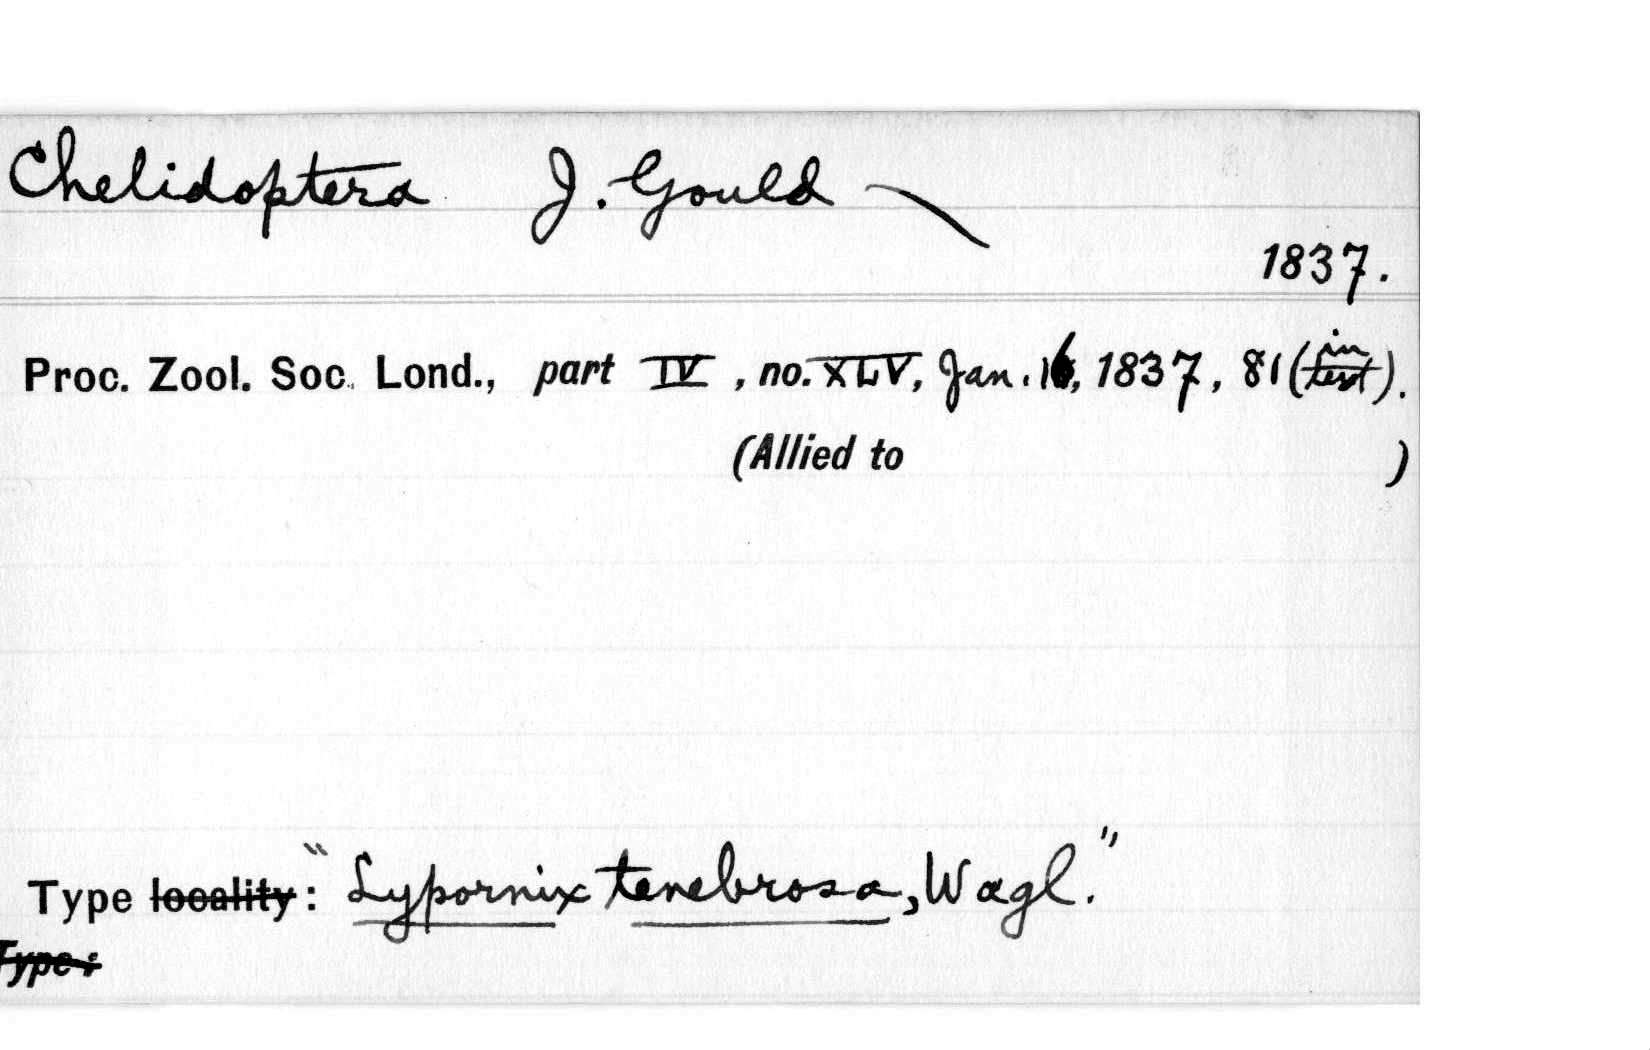 Chelidoptera J. Gould
1837.
Proc. Zool. Soc. Lond., part IV, no. XLV, Jan. 16, 1837, 81 (in text).
(Allied to )
Type locality: "Lypornix tenebrosa, Wagl."
Type: